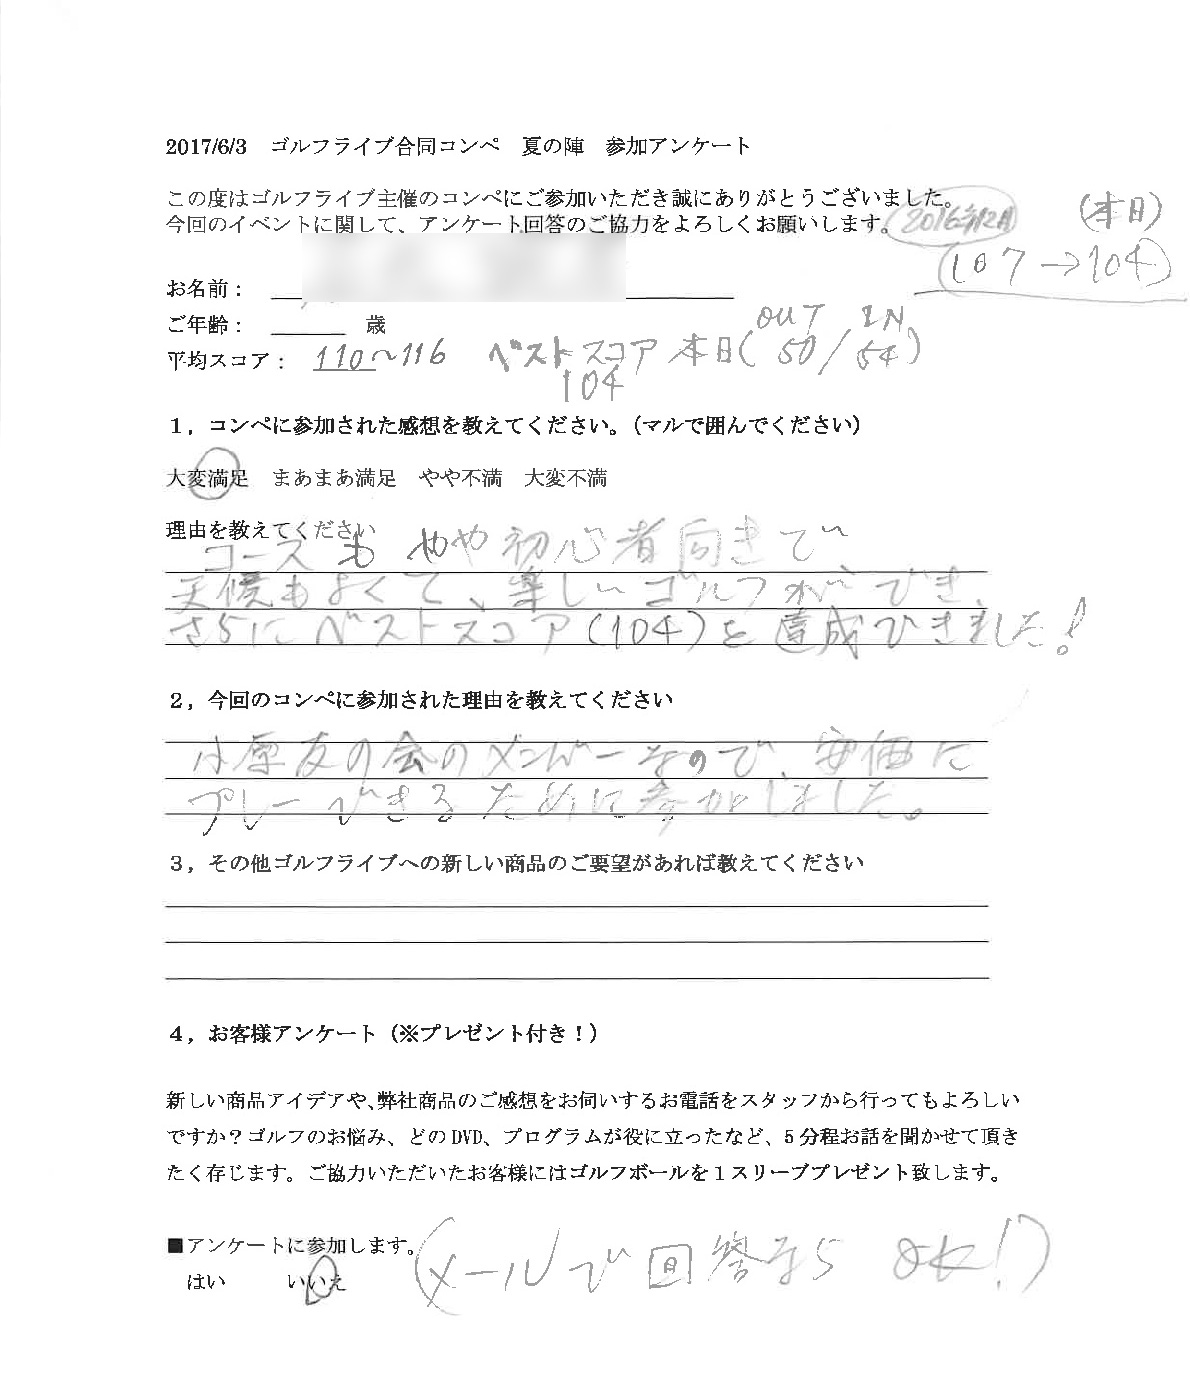 2017/6/3　ゴルフライブ合同コンペ　夏の陣　参加アンケート
この度はゴルフライブ主催のコンペにご参加いただき誠にありがとうございました。
今回のイベントに関して、アンケート回答のご協力をよろしくお願いします。
2016年12月 (本日)
(107→104)
お名前：
ご年齢：　　　歳
平均スコア： 110〜116 ベストスコア 本日(OUT 50/IN 54)
104
１，コンペに参加された感想を教えてください。（マルで囲んでください）
大変満足　まあまあ満足　やや不満　大変不満
理由を教えてください
コースも やや初心者向きで、
天候もよくて、楽しいゴルフができ、
さらにベストスコア(104)を達成できました!
２，今回のコンペに参加された理由を教えてください
小原友の会のメンバーなので、安価に
プレーできるために参加しました。
３，その他ゴルフライブへの新しい商品のご要望があれば教えてください
４，お客様アンケート（※プレゼント付き！）
新しい商品アイデアや、弊社商品のご感想をお伺いするお電話をスタッフから行ってもよろしい
ですか？ゴルフのお悩み、どのDVD、プログラムが役に立ったなど、５分程お話を聞かせて頂き
たく存じます。ご協力いただいたお客様にはゴルフボールを１スリーブプレゼント致します。
■アンケートに参加します。
はい　　　いいえ (メールで回答なら OK!)